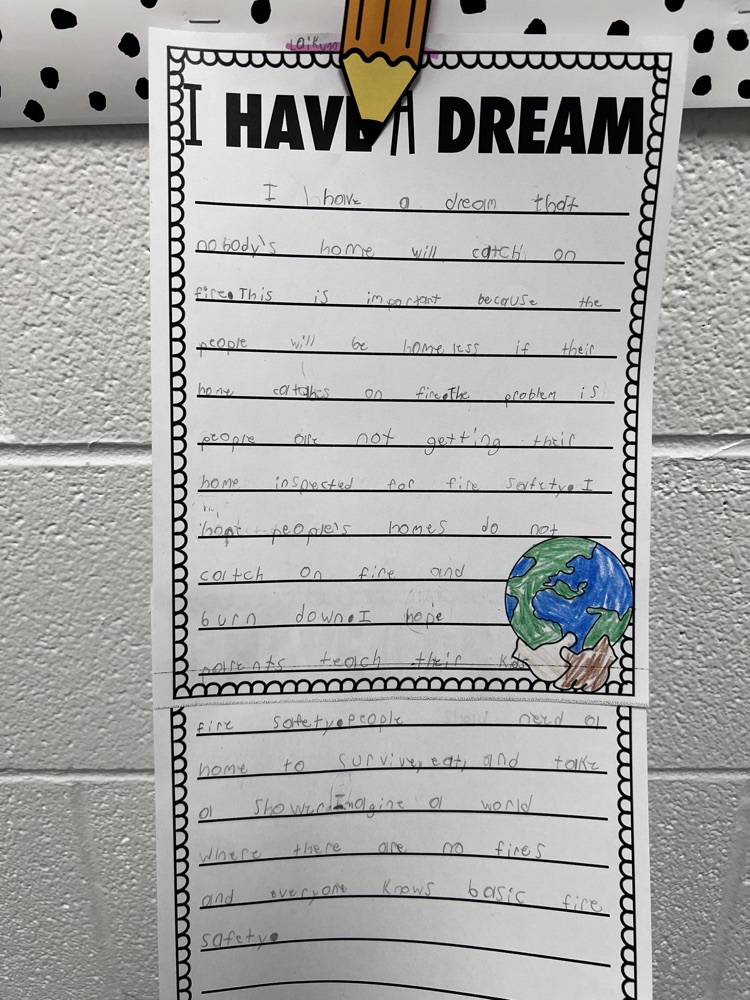 I HAVE A DREAM
I have a dream that
nobody's home will catch on
fire. This is important because the
people will be homeless if their
home catches on fire. The problem is
people are not getting their
home inspected for fire safety. I
hope people's homes do not
catch on fire and
burn down. I hope
parents teach their
fire safety. people need a
home to survive, eat, and take
a shower. Imagine a world
where there are no fires
and everyone knows basic fire
safety.